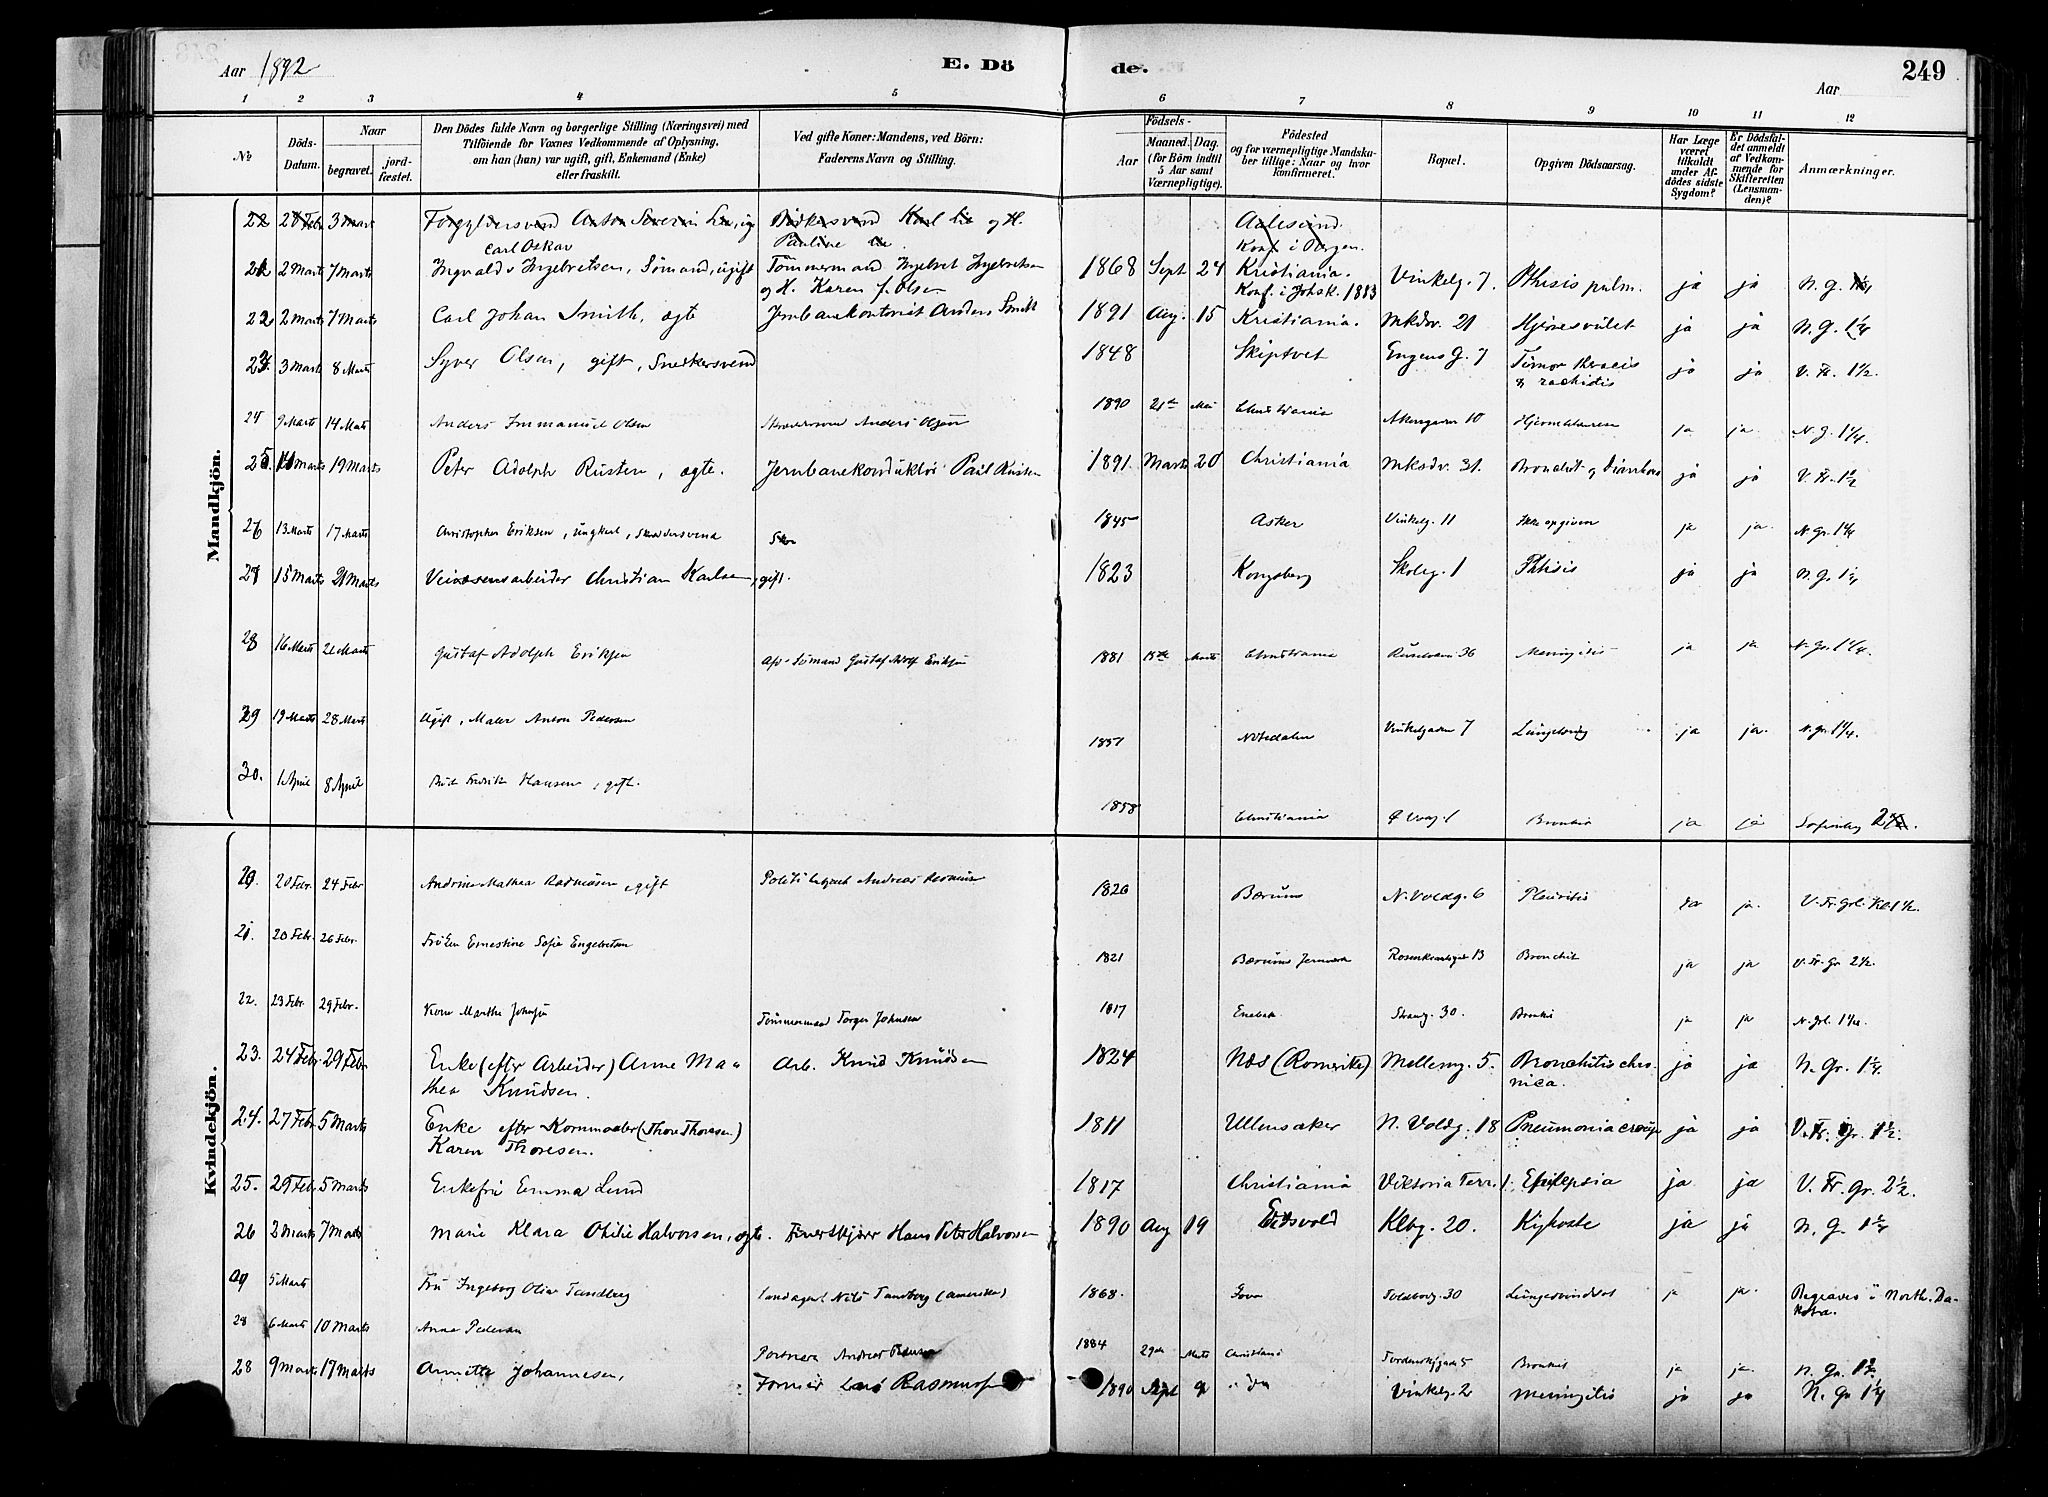 Aar 1892
E. Dö
de.
249
Aar
1 2 3 4 5 6 7 8 9 10 11 12
No
Döds-Datum.
Naar
begravet.
jord-fæstet.
Den Dödes fulde Navn og borgerlige Stilling (Næringsvei) med
Tilföiende for Voxnes Vedkommende af Oplysning,
om han (hun) var ugift, gift, Enkemand (Enke)
eller fraskilt.
Ved gifte Koner: Mandens, ved Börn:
Faderens Navn og Stilling.
Födsels-
Aar
Maaned. Dag.
(for Börn indtil
5 Aar samt
Værnepligtige).
Födested
og for værnepligtige Mandska-
ber tillige: Naar og hvor
konfirmeret.
Bopæl.
Opgiven Dödsaarsag.
Har Læge
været
tilkaldt
under Af-
dödes sidste
Sygdom?
Er Dödsfal-
det anmeldt
af Vedkom-
mende for
Skifteretten
(Lensman-
den)?
Anmærkninger.
Mandkjön.
22 28 Febr 3 Mart Forgyldersvend Anton Severin Lie, ug Bödkersvend Karl Lie og H. Aalesund.
Carl Oskar Pauline Konf. i Bergen.
21 2 Marts 7 Marts Ingvald Ingebretsen, Sömand, ugift Tömmermand Ingebret Ingebretsen 1868 Sept 24 Kristiania. Vinkelg. 7. Phtisis pulm. ja ja N. g.
og H. Karen f. Olsen Konf. i Johsk. 1883
22 2 Marts 7 Marts Carl Johan Smith, ægte Jernbanekontorist Anders Smith 1891 Aug. 15 Kristiania. Mkdv. 21 ja ja N. G. 1 1/4
23. 3 Mart 8 Marts Syver Olsen, gift, Snedkersvend 1848 Skiptvet Engens G. 7 Tumor ja ja V. Fr. 1 1/2.
& rachidis
24 9 Marts 14 Marts Anders Immanuel Olsen Anders Olsen 1890 21de Mai Christiania Akersgaden 10 ja ja. N. G. 1 1/4.
25. 11 Marts 19 Marts Peter Adolph Rusten, ægte. Jernbanekonduktör Paul Rusten 1891. Marts 20 Christiania Mksdv. 31. Bronchit. og Diarrhoea ja ja V. Fr. 1 1/2
26 13 Marts 17 Marts Christopher Eriksen, ungkarl, Skræddersvend 1845 Asker Vinkelg. 11 Ikke opgiven ja ja. N. Gr. 1 1/4
27 15 Marts 21 Marts Veivæsensarbeider Christian Karlsen, gift. 1823 Kongsberg Skoleg. 1 Phtisis ja ja N. G. 1 1/4
28 16 Marts 21 Marts Gustaf Adolph Eriksen Afd. Sömand Gustaf Adolf Eriksen 1881 15de Marts Christiania 36 Meningitis ja ja N. Gr. 1 1/4.
29 19 Marts 28 Marts Ugift, Maler Anton Pedersen 1857 Vinkelgaden 7 ja ja. N. Gr. 1 1/4.
30. 1 April 8 April Fredrik Hansen, gift. 1858 Christiania ja ja
Kvindekjön.
20. 20 Febr. 24 Febr Andrine Mathea Rasmusen, gift Andreas 1820 Bærum N. Voldg. 6 Pleuritis ja ja.
21. 20 Febr. 26 Febr. Fröken Ernestine Sofie Engebretsen 1821 Bærums Jernværk 13 Bronchit ja ja V. Fr. Gr 2 1/2.
22. 23 Febr. 29 Febr. Kone Marthe Johnsen Tömmermand Torger Johnsen 1817 Enebak Strandg. 30. ja ja N. Gr. 1 1/4
23. 24 Febr 29 Febr Enke (efter Arbeider) Anne Ma- Arb. Knud Knudsen 1824 Næs (Romerike) Mølleng. 5. Bronchitis chro- ja ja N. Gr. 1 1/4.
thea Knudsen. nica.
24. 27 Febr 5 Marts Enke efter Kornmaaler (Thore Thoresen) 1811 Ullensaker N. Voldg. 18 Pneumonia croup. ja ja V. Fr. Gr. 1 1/2.
Karen Thoresen.
25. 29 Feb 5 Marts Enkefru Emma Lund 1817 Christiania Viktoria Terr. 1. Epilepsia ja ja V. Fr. Gr. 2 1/2.
26 2 Marts 7 Marts Marie Klara Othilie Halvorsen, ægte. Hans Peter Halvorsen 1890 Aug 19 Eidsvold Klbg. 20. Kighoste ja ja N. G. 1 1/4
5 Marts Fru Ingeborg Olive Tandberg Landagent Nils Tandberg (Amerika) 1868. 30 ja ja. Begraves i North. Da-
kota.
28 6 Marts 10 Marts Anna Pedersen Andreas Pedersen 1884 29de Marts Christiania 5 ja ja. N. Gr.
28 9 Marts 17 Marts Annette Johannesen, Lars Rasmus 1890 Sept 9 Vinkelg. 2 Meningitis ja ja N. Gr 1 1/4